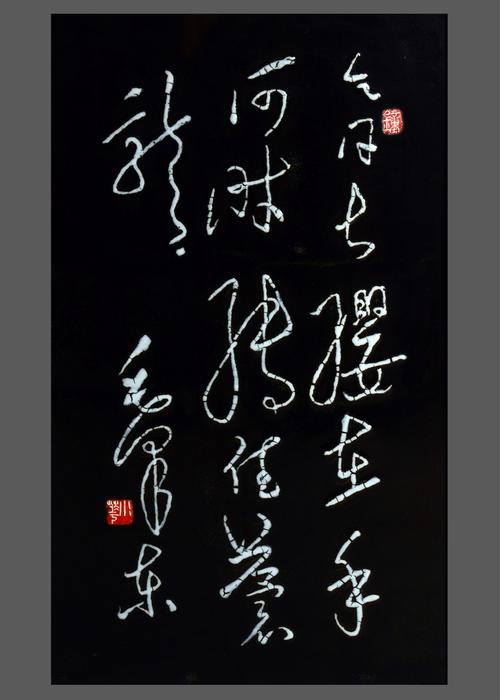 今日长缨在手
何时缚住苍
龙
毛泽东